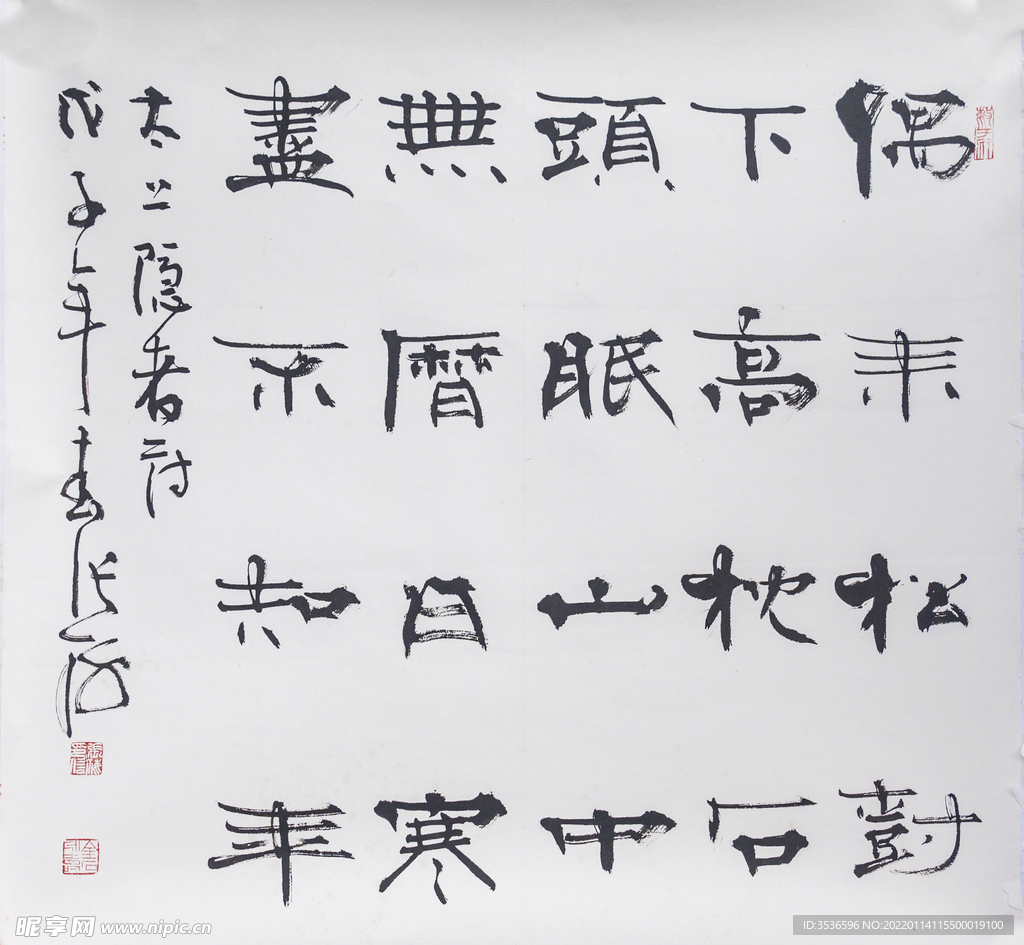 偶来松尌
下高枕石
頭眠山中
無曆日寒
盡不知年
太上隐者诗
戊子年書张海
昵享网 www.nipic.cn
ID:3536596 NO:20220114115500019100